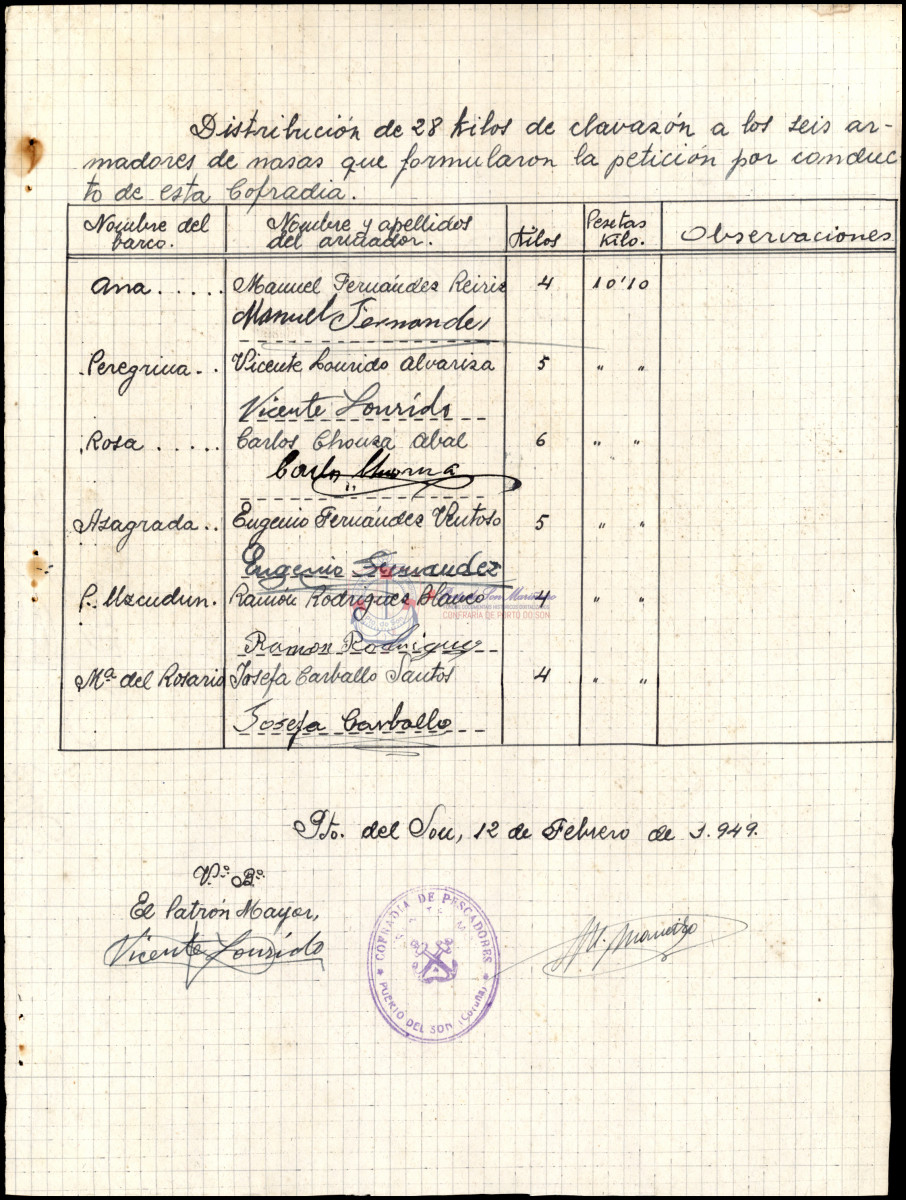 Distribución de 28 kilos de clavazón a los seis ar-
madores de nasas que formularon la petición por conduc-
to de esta Cofradia.
Nombre del barco. Nombre y apellidos del armador. Kilos Pesetas Kilo. Observaciones
Ana..... Manuel Fernández Reiriz 4 10'10
Manuel Fernandez
Peregrina.. Vicente Lourido Alvariza 5 " "
Vicente Lourido
Rosa..... Carlos Chouza Abal 6 " "
Carlos Chouza
Asagrada.. Eugenio Fernández Ventoso 5 " "
Eugenio Fernandez
P. Uzcudun. Ramón Rodriguez Blanco 4 " "
CONFRARIA DE PORTO DO SON
Ramon Rodriguez
Mª del Rosario Josefa Carballo Santos 4 " "
Josefa Carballo
Pto. del Son, 12 de Febrero de 1.949.
Vº Bº
El Patrón Mayor,
Vicente Lourido
COFRADIA DE PESCADORES
PUERTO DEL SON (Coruña)